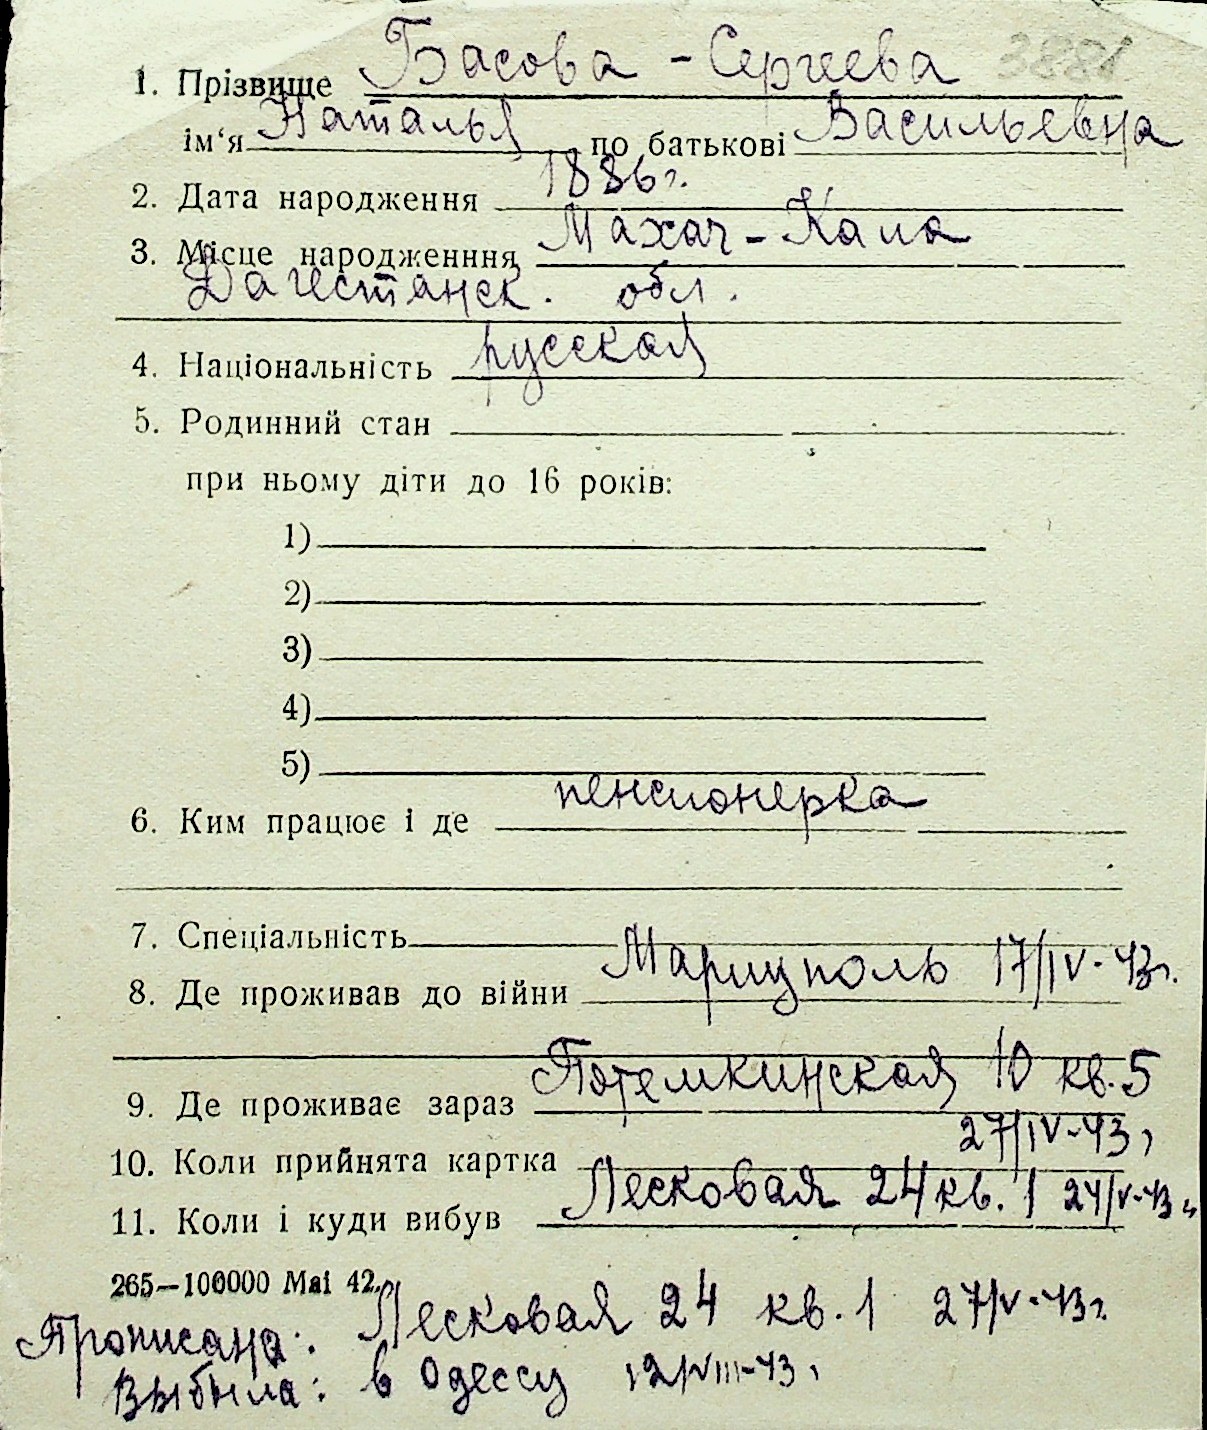 3881
1. Прізвище Басова - Сергеева
ім'я Наталья по батькові Васильевна
2. Дата народження 1886 г.
3. Місце народженння Махач-Кала
Дагестанск. обл.
4. Національність русская
5. Родинний стан
при ньому діти до 16 років:
1)
2)
3)
4)
5)
6. Ким працює і де пенсионерка
7. Спеціальність
8. Де проживав до війни Мариуполь 17/IV-43г.
9. Де проживає зараз Потемкинская 10 кв. 5
10. Коли прийнята картка 27/IV-43г
11. Коли і куди вибув Песковая 24 кв. 1 24/V-43г
265—100000 Mai 42.
Прописана: Песковая 24 кв. 1 27/V-43г.
Выбыла: в Одессу 12/VIII-43г